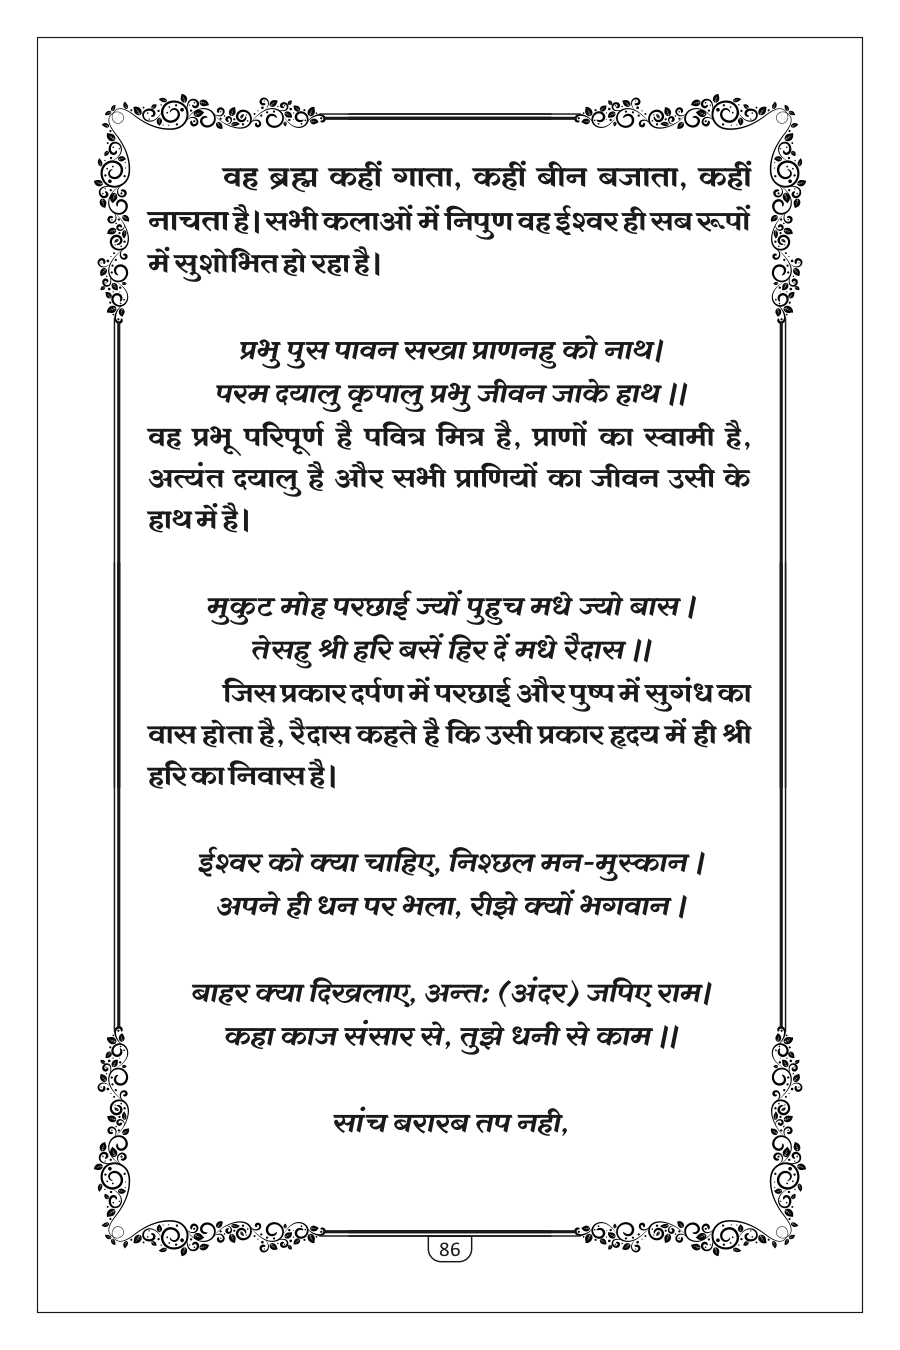 वह ब्रह्म कहीं गाता, कहीं बीन बजाता, कहीं
नाचता है। सभी कलाओं में निपुण वह ईश्वर ही सब रूपों
में सुशोभित हो रहा है।
प्रभु पुस पावन सखा प्राणनहु को नाथ।
परम दयालु कृपालु प्रभु जीवन जाके हाथ ।।
वह प्रभू परिपूर्ण है पवित्र मित्र है, प्राणों का स्वामी है,
अत्यंत दयालु है और सभी प्राणियों का जीवन उसी के
हाथ में है।
मुकुट मोह परछाई ज्यों पुहुच मधे ज्यो बास ।
तेसहु श्री हरि बसें हिर दें मधे रैदास ।।
जिस प्रकार दर्पण में परछाई और पुष्प में सुगंध का
वास होता है, रैदास कहते है कि उसी प्रकार हृदय में ही श्री
हरि का निवास है।
ईश्वर को क्या चाहिए, निश्छल मन-मुस्कान ।
अपने ही धन पर भला, रीझे क्यों भगवान ।
बाहर क्या दिखलाए, अन्त: (अंदर) जपिए राम।
कहा काज संसार से, तुझे धनी से काम ।।
सांच बरारब तप नही,
86